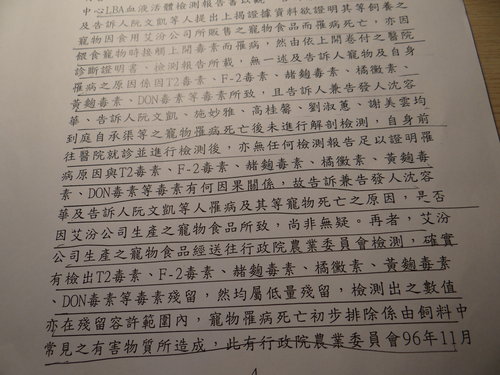 中心LBA血液活體檢測報告書以觀
及告訴人阮文凱等人提出上揭證據資料欲證明其等飼養之
寵物因食用艾汾公司所販售之寵物食品而罹病死亡，亦因
餵食寵物時接觸上開毒素而罹病，然由依上開卷付之醫院
診斷證明書、檢測報告所載，無一述及告訴人寵物及自身
罹病之原因係因T2毒素、F-2毒素、赭麴毒素、橘黴素、
黃麴毒素、DON毒素等毒素所致，且告訴人兼告發人沈容
華、告訴人阮文凱、施妙雅、高桂馨、劉淑蕙、謝美雲均
到庭自承渠等之寵物罹病死亡後未進行解剖檢測，自身前
往醫院就診並進行檢測後，亦無任何檢測報告足以證明罹
病原因與T2毒素、F-2毒素、赭麴毒素、橘黴素、黃麴毒
素、DON毒素等毒素有何因果關係，故告訴兼告發人沈容
華及告訴人阮文凱等人罹病及其等寵物死亡之原因，是否
因艾汾公司生產之寵物食品所致，尚非無疑。再者，艾汾
公司生產之寵物食品經送往行政院農業委員會檢測，確實
有檢出T2毒素、F-2毒素、赭麴毒素、橘黴素、黃麴毒素
、DON毒素等毒素殘留，然均屬低量殘留，檢測出之數值
亦在殘留容許範圍內，寵物罹病死亡初步排除係由飼料中
常見之有害物質所造成，此有行政院農業委員會96年11月